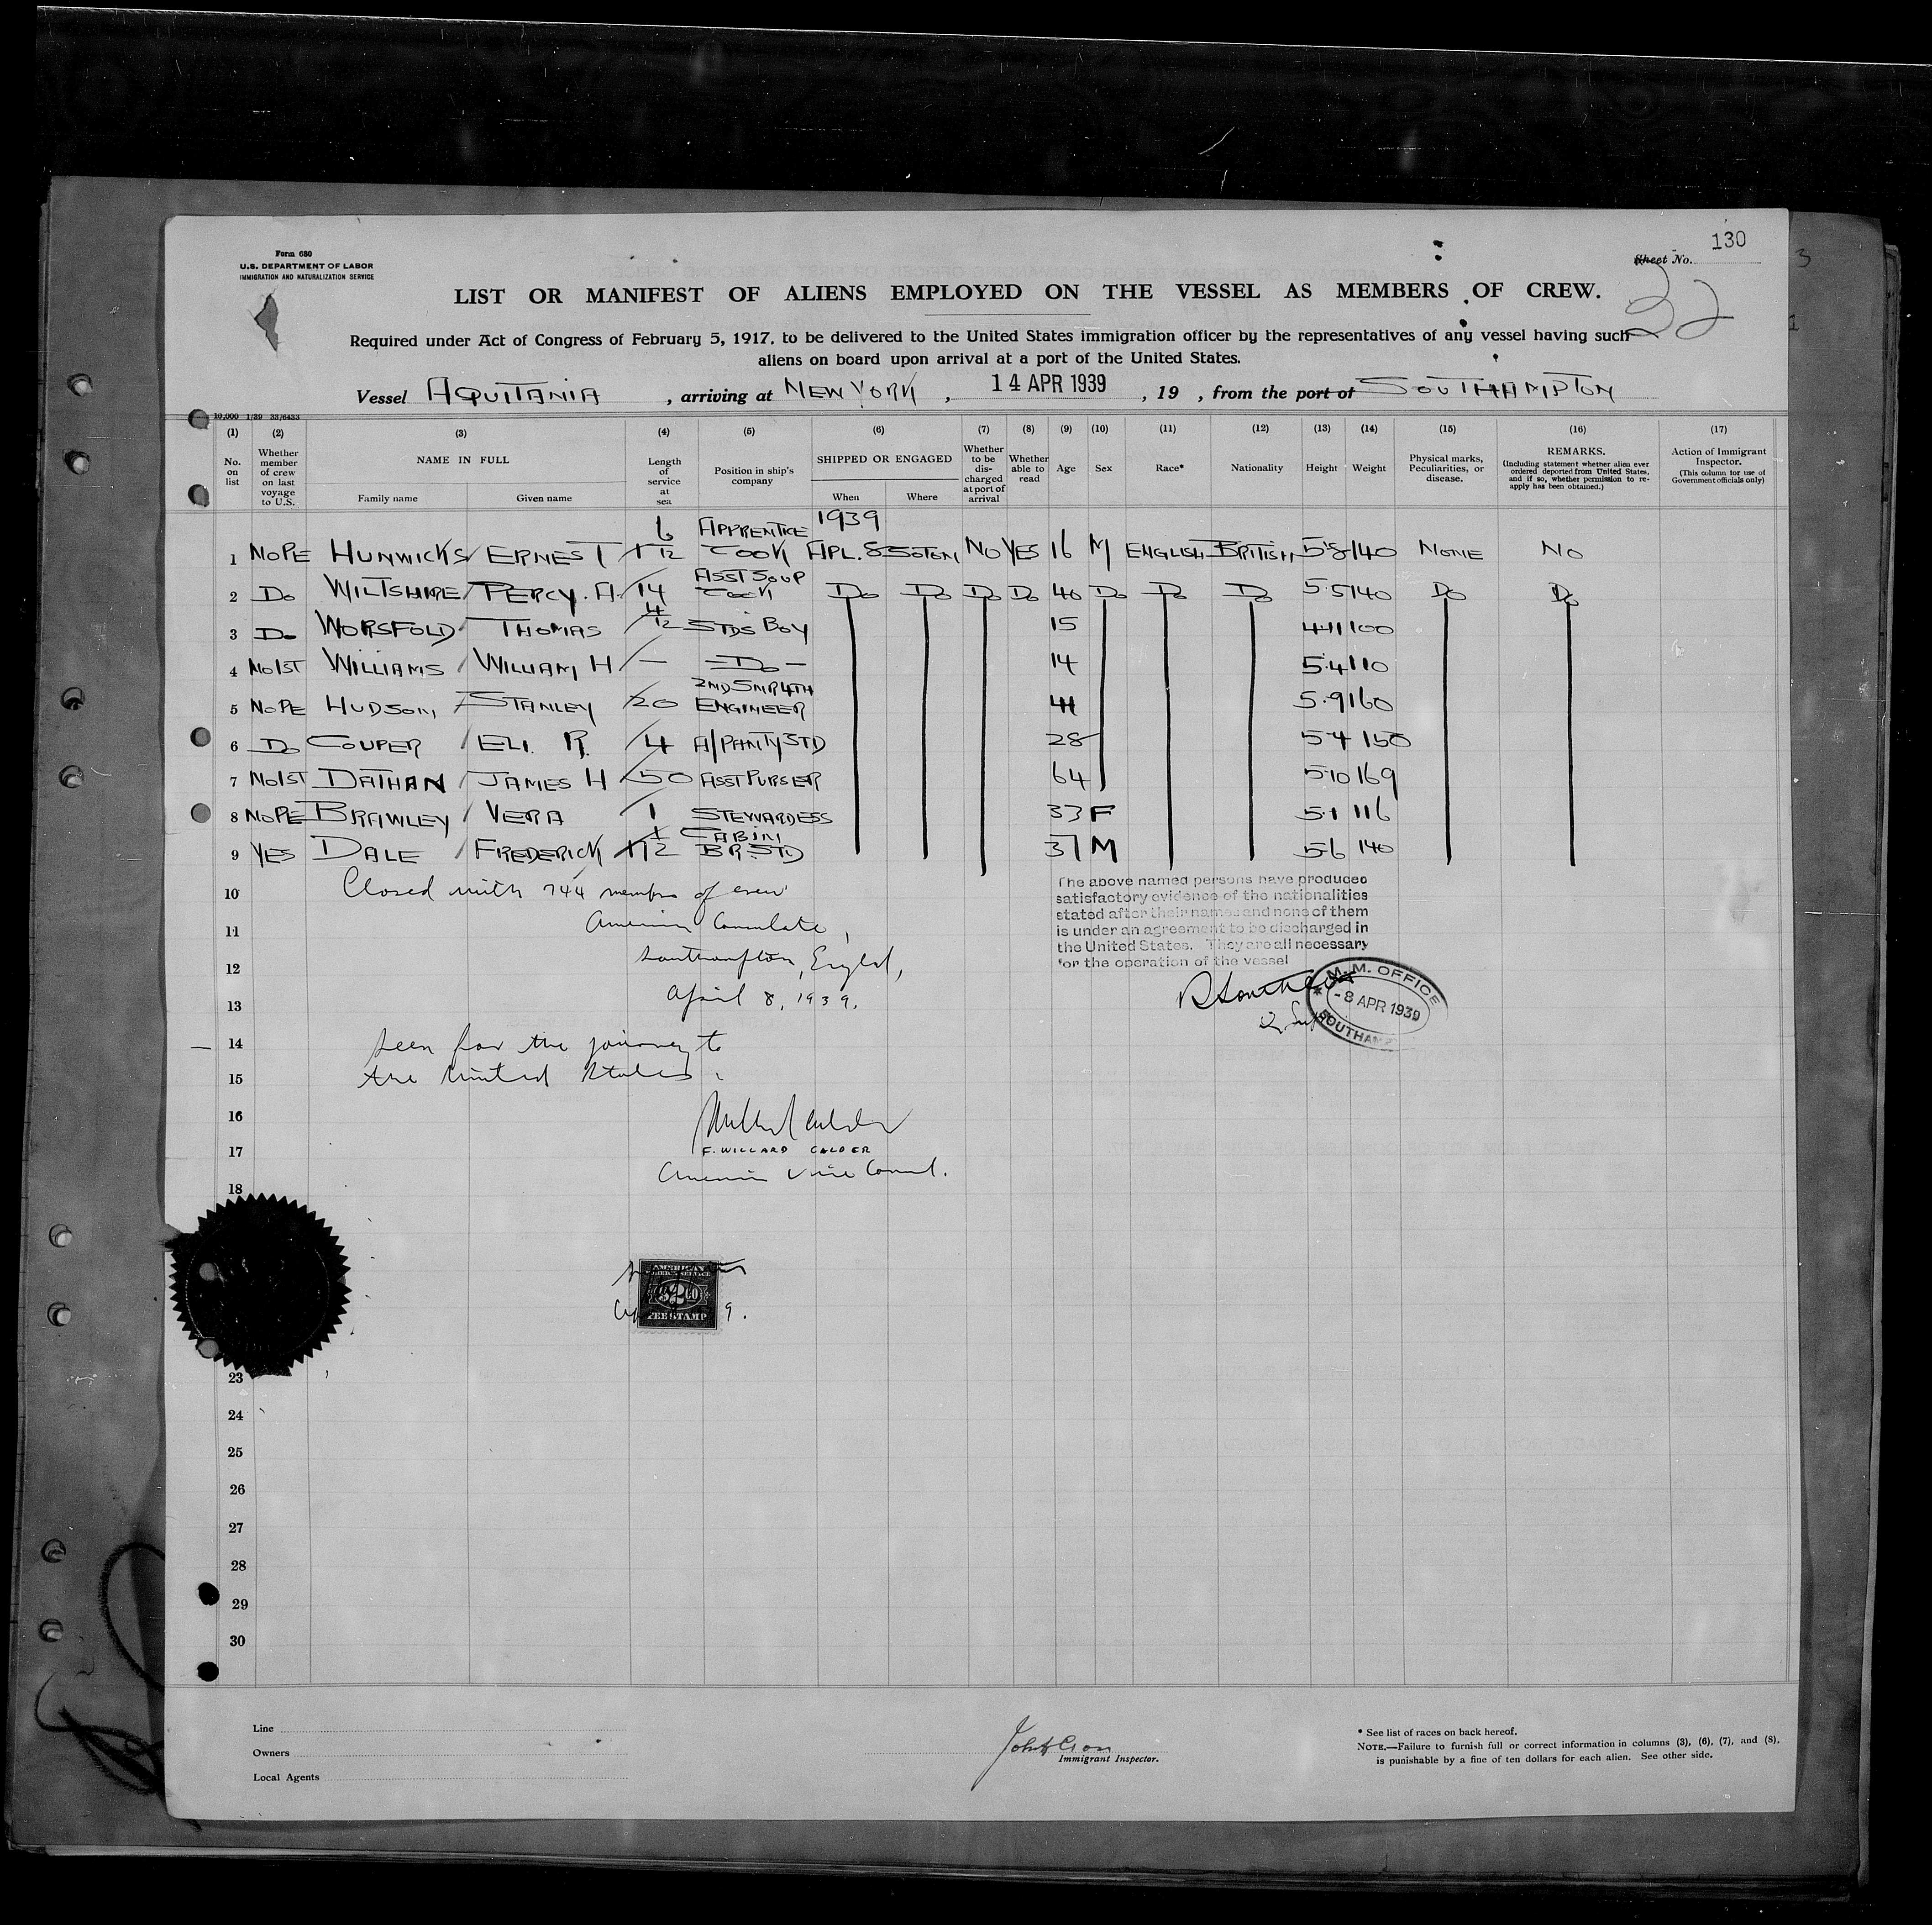 130
Form 680
U.S. DEPARTMENT OF LABOR
IMMIGRATION AND NATURALIZATION SERVICE
Sheet No.
22
LIST OR MANIFEST OF ALIENS EMPLOYED ON THE VESSEL AS MEMBERS OF CREW.
Required under Act of Congress of February 5, 1917, to be delivered to the United States immigration officer by the representatives of any vessel having such
aliens on board upon arrival at a port of the United States.
Vessel AQUITANIA, arriving at NEW YORK, 14 APR 1939, 19 , from the port of SOUTHAMPTON
10,000 1/39 33/6433
(1) (2) (3) (4) (5) (6) (7) (8) (9) (10) (11) (12) (13) (14) (15) (16) (17)
No. on list
Whether member of crew on last voyage to U.S.
NAME IN FULL
Family name Given name
Length of service at sea
Position in ship's company
SHIPPED OR ENGAGED
When Where
Whether to be discharged at port of arrival
Whether able to read
Age
Sex
Race*
Nationality
Height
Weight
Physical marks, Peculiarities, or disease.
REMARKS.
(Including statement whether alien ever ordered deported from United States, and if so, whether permission to re-apply has been obtained.)
Action of Immigrant Inspector.
(This column for use of Government officials only)
6 APPRENTICE 1939
1 NOPE HUNWICKS ERNEST 12 COOK APL. 8 SOTON NO YES 16 M ENGLISH BRITISH 5·8 140 NONE NO
ASST SOUP
2 Do WILTSHIRE PERCY. A. 14 COOK Do Do Do Do 40 Do Do Do 5·5 140 Do Do
3 Do WORSFOLD THOMAS 4/12 STDS BOY 15 4·11 100
4 NO1ST WILLIAMS WILLIAM H — Do — 14 5·4 110
5 NOPE HUDSON STANLEY 20 ENGINEER 41 5·9 160
6 Do COUPER ELI. R. 4 A/PANTY STD 28 5·4 150
7 NO1ST DATHAN JAMES H 50 ASST PURSER 64 5·10 169
8 NOPE BRAWLEY VERA 1 STEWARDESS 33 F 5·1 116
CABIN
9 YES DALE FREDERICK 12 BR. STD 37 M 5·6 140
10 Closed with 744 members of crew
11 American Consulate,
12 Southampton, England,
13 April 8, 1939.
14 Seen for the journey to
15 the United States.
16
17 F. WILLARD CALDER
American Vice Consul.
18
The above named persons have produced
satisfactory evidence of the nationalities
stated after their names and none of them
is under an agreement to be discharged in
the United States. They are all necessary
for the operation of the vessel
M.M. OFFICE
-8 APR 1939
SOUTHAMP
AMERICAN
FEE STAMP
23
24
25
26
27
28
29
30
Line
Owners
Local Agents
Immigrant Inspector.
* See list of races on back hereof.
NOTE.—Failure to furnish full or correct information in columns (3), (6), (7), and (8),
is punishable by a fine of ten dollars for each alien. See other side.